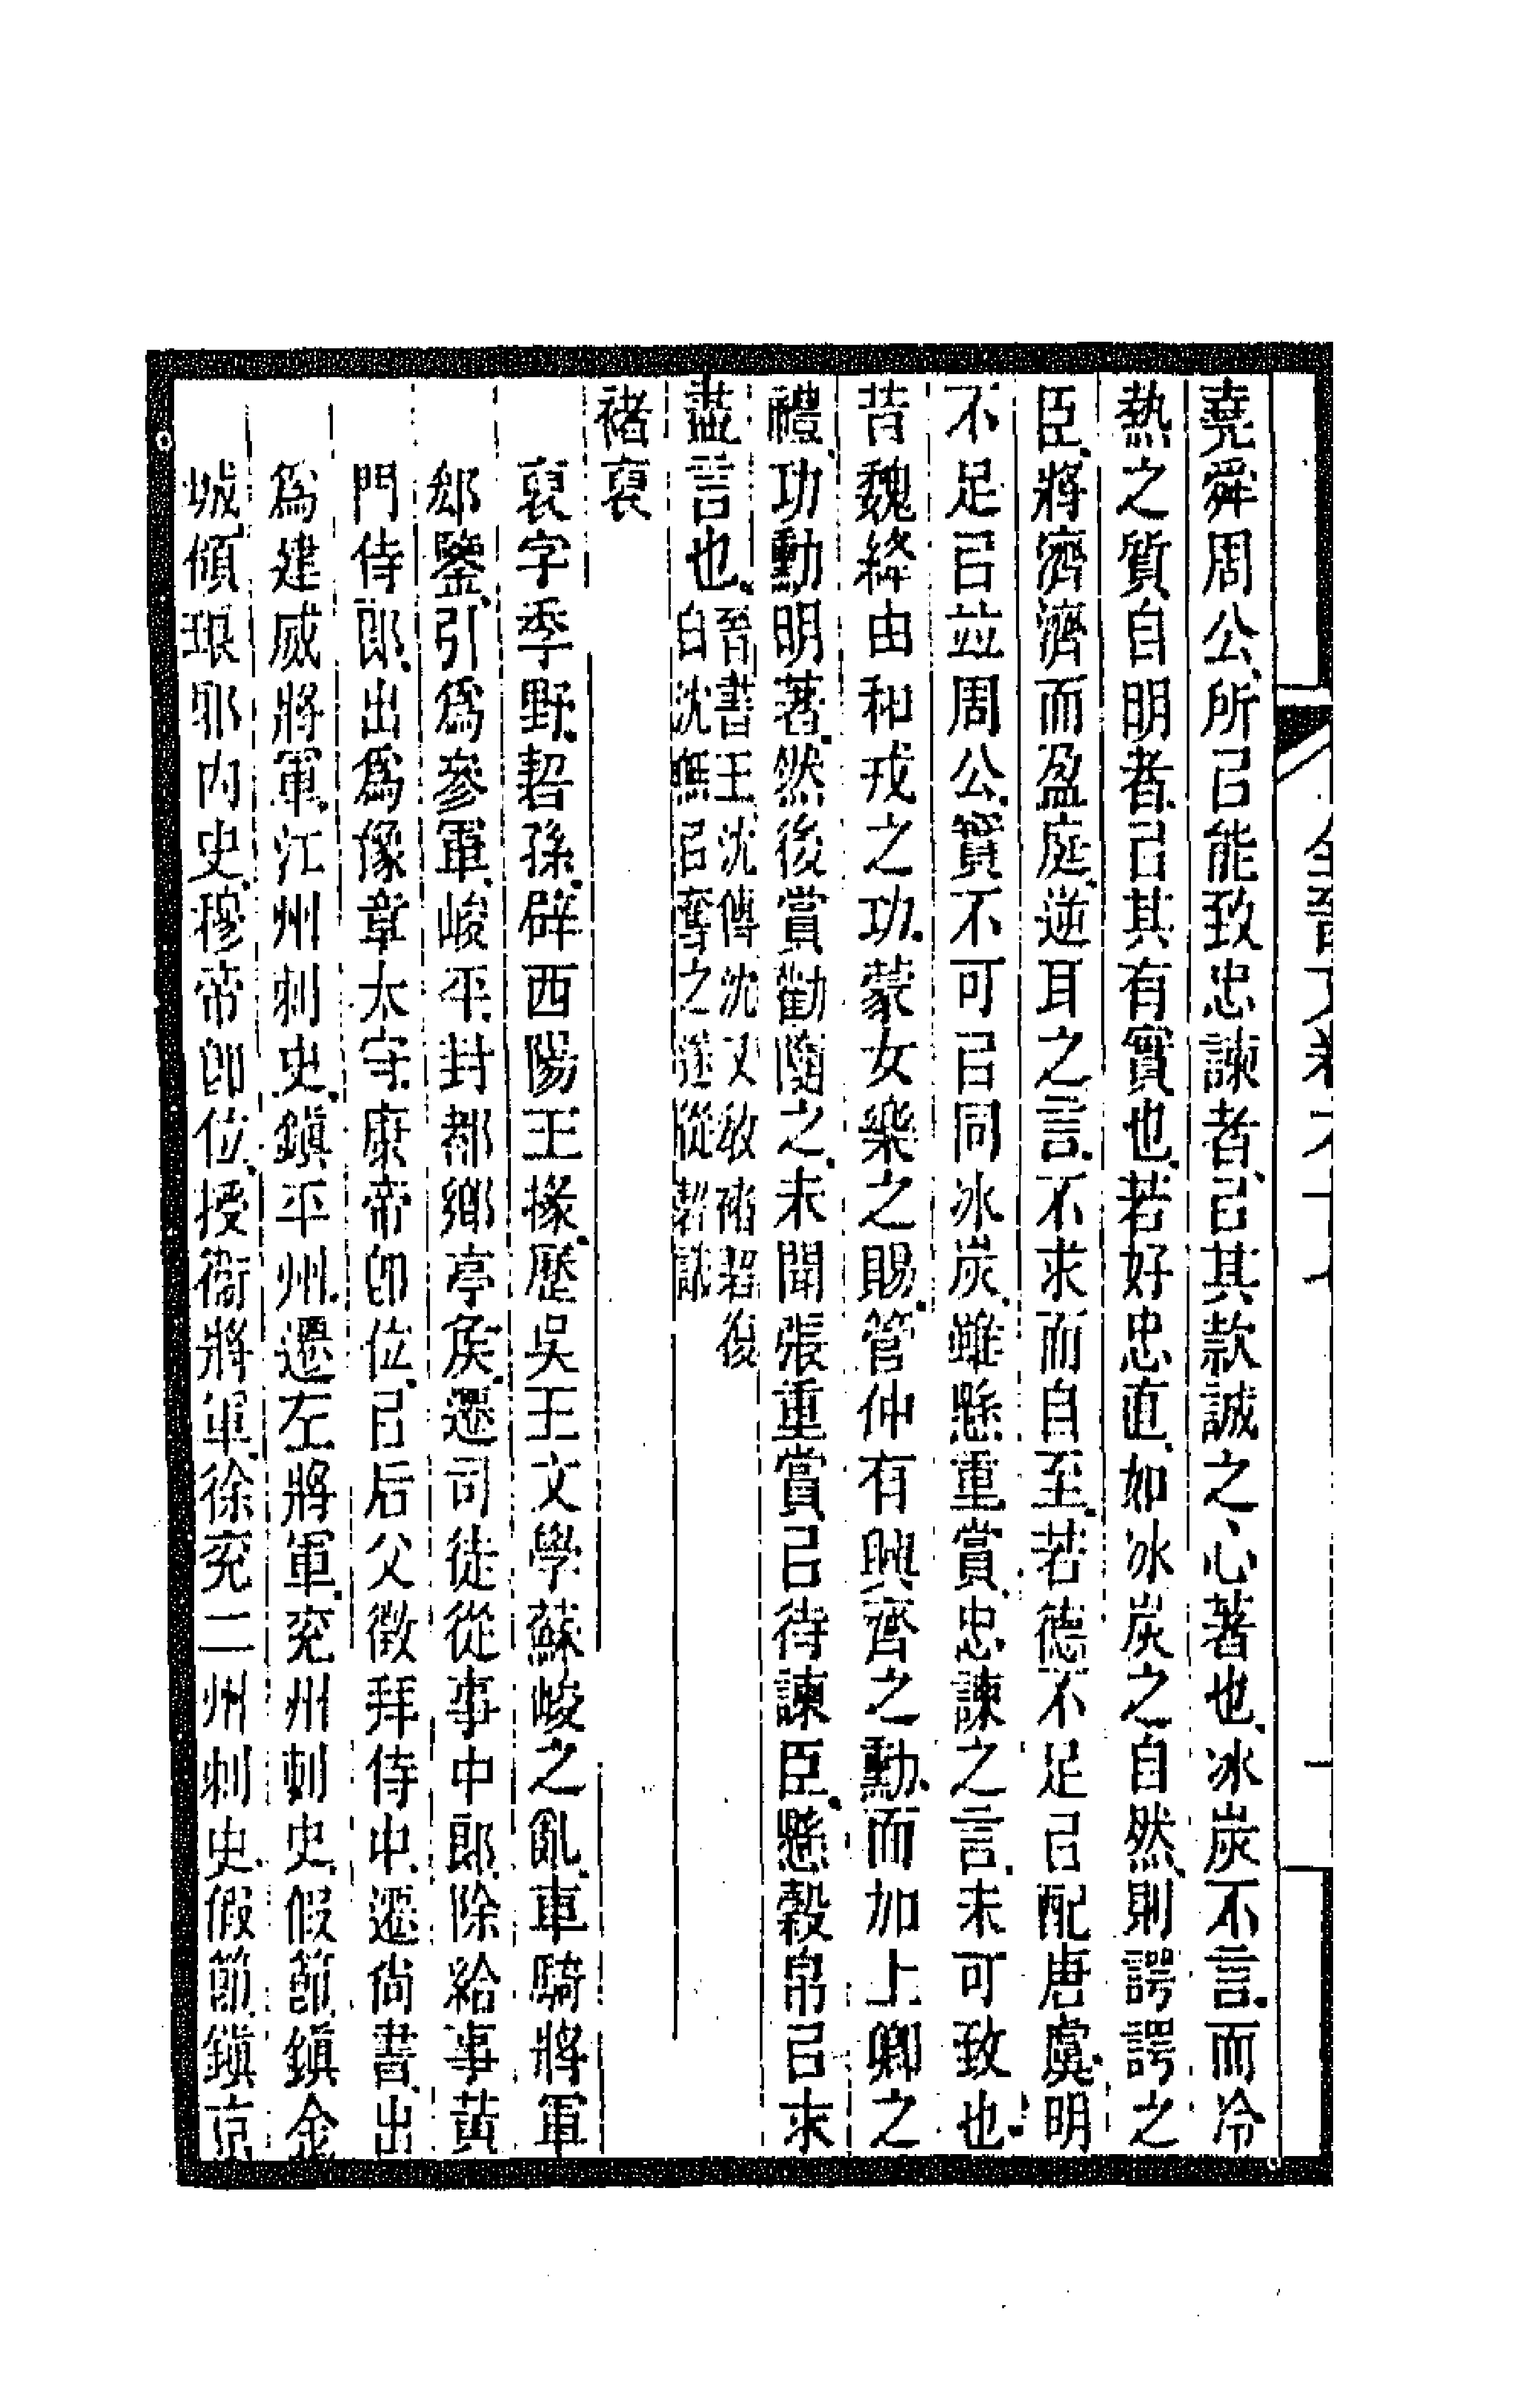 堯舜周公、所㠯能致忠諫者、㠯其款誠之心著也、冰炭不言、而冷
熱之質自明者、㠯其有實也、若好忠直、如冰炭之自然、則諤諤之
臣、將濟濟而盈庭、逆耳之言、不求而自至、若德不足㠯配唐虞、明
不足㠯竝周公、實不可㠯同冰炭、雖懸重賞、忠諫之言、未可致也、
昔魏絳由和戎之功、蒙女樂之賜、管仲有興齊之勳、而加上卿之
禮、功勳明著、然後賞勸隨之、未聞張重賞㠯待諫臣、懸穀帛㠯求
盡言也、
晉書王沈傳沈又敎褚䂮復
白沈無㠯奪之遂從䂮議
褚裒
裒字季野、䂮孫、辟西陽王掾、歷吳王文學、蘇峻之亂、車騎將軍
郄鑒、引爲參軍、峻平、封都鄉亭侯、遷司徒從事中郎、除給事黃
門侍郎、出爲豫章太守、康帝卽位、㠯后父徵拜侍中、遷尙書、出
爲建威將軍、江州刺史、鎭半州、遷左將軍、兗州刺史、假節、鎭金
城、傾琅邪內史、穆帝卽位、授衞將軍、徐兗二州刺史、假節、鎭京